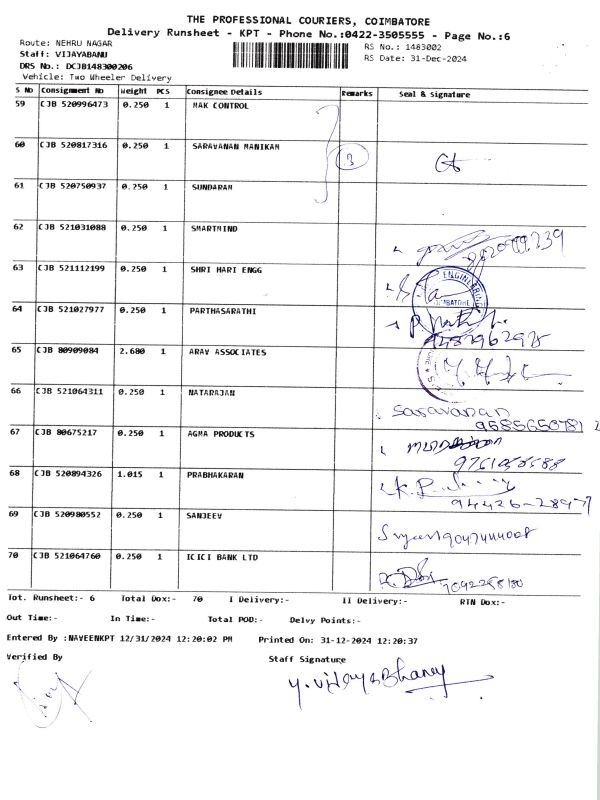 THE PROFESSIONAL COURIERS, COIMBATORE
Delivery Runsheet - KPT - Phone No.:0422-3505555 - Page No.:6
Route: NEHRU NAGAR
Staff: VIJAYABANU
DRS No.: DCJB148300206
Vehicle: Two Wheeler Delivery
RS No.: 1483002
RS Date: 31-Dec-2024
S No Consignment No Weight PCS Consignee Details Remarks Seal & Signature
59 CJB 520996473 0.250 1 MAK CONTROL
60 CJB 520817316 0.250 1 SARAVANAN MANIKAM 3
61 CJB 520750937 0.250 1 SUNDARAM
62 CJB 521031088 0.250 1 SMARTMIND
63 CJB 521112199 0.250 1 SHRI HARI ENGG ENGINEERING
64 CJB 521027977 0.250 1 PARTHASARATHI
65 CJB 80909084 2.680 1 ARAV ASSOCIATES
66 CJB 521064311 0.250 1 NATARAJAN Saravanan
9585650781
67 CJB 80675217 0.250 1 AGMA PRODUCTS
68 CJB 520894326 1.015 1 PRABHAKARAN
94426-28977
69 CJB 520980552 0.250 1 SANJEEV
70 CJB 521064760 0.250 1 ICICI BANK LTD
Tot. Runsheet:- 6 Total Dox:- 70 I Delivery:- II Delivery:- RTN Dox:-
Out Time:- In Time:- Total POD:- Delvy Points:-
Entered By :NAVEENKPT 12/31/2024 12:20:02 PM Printed On: 31-12-2024 12:20:37
Verified By Staff Signature
Y. Vijaya Bhanu